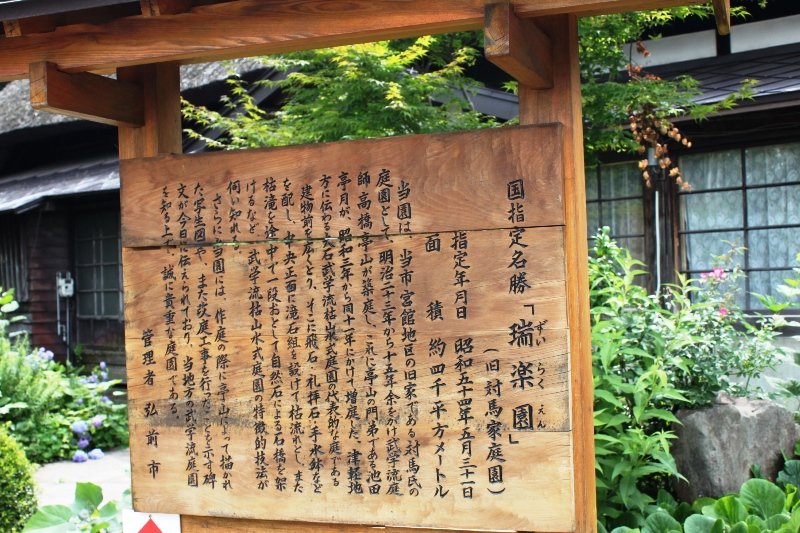 国指定名勝「瑞楽園」
ずいらくえん
（旧対馬家庭園）
指定年月日 昭和五十四年五月三十一日
面積 約四千平方メートル
当園は、当市宮館地区の旧家である対馬氏の
庭園として、明治二十三年から十五年余をかけ武学流庭
師高橋亭山が築庭し、これに亭山の門弟である池田
亭月が、昭和三年から同十一年にかけて増庭した、津軽地
方に伝わる大石武学流枯山水式庭園の代表的な庭である。
建物前を広くとり、そこに飛石・礼拝石・手水鉢など
を配し、中央正面に滝石組を設けて枯流れとし、また
枯滝を途中で一段おとして自然石による石橋を架
けるなど、武学流枯山水式庭園の特徴的技法が
伺い知れる。
さらに当園には、作庭の際に亭山によって描かれ
た写生図や、また改庭工事を行ったことを示す碑
文が今日に伝えられており、当地方の武学流庭園
を知る上で、誠に貴重な庭園である。
管理者 弘前市